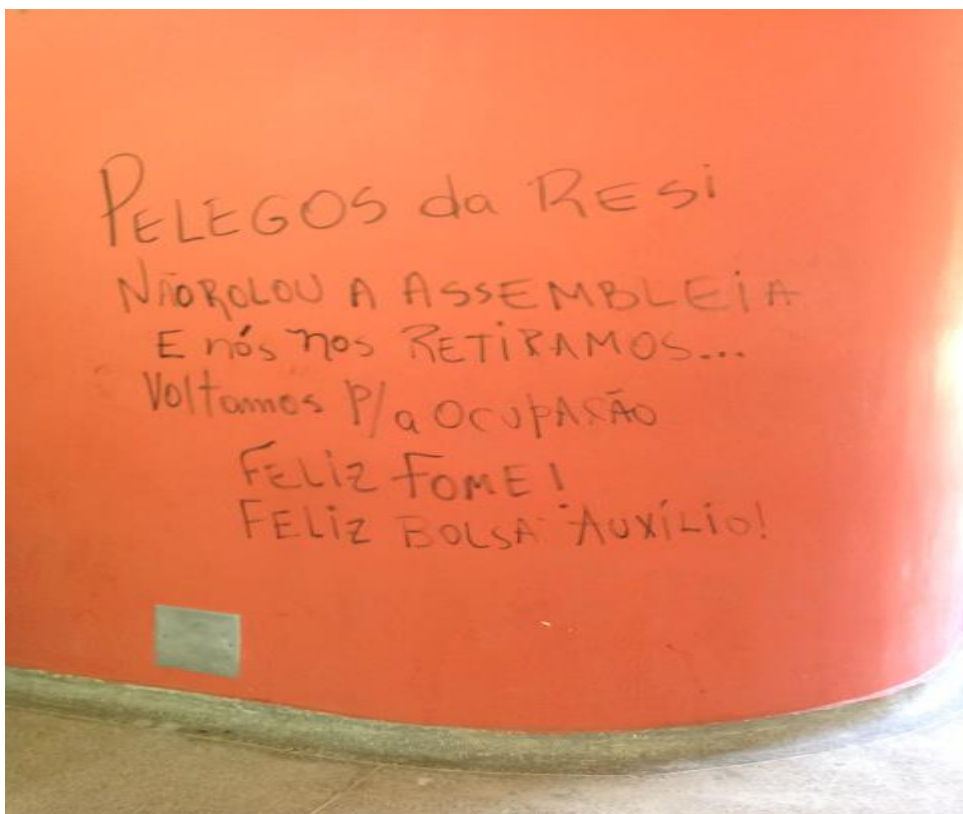 PELEGOS da RESi
NÃO ROLOU A ASSEMBLEiA
E nós nos RETIRAMOS...
Voltamos P/a OCUPAÇÃO
FELiZ FOME!
FELiZ BOLSA AUXÍLiO!